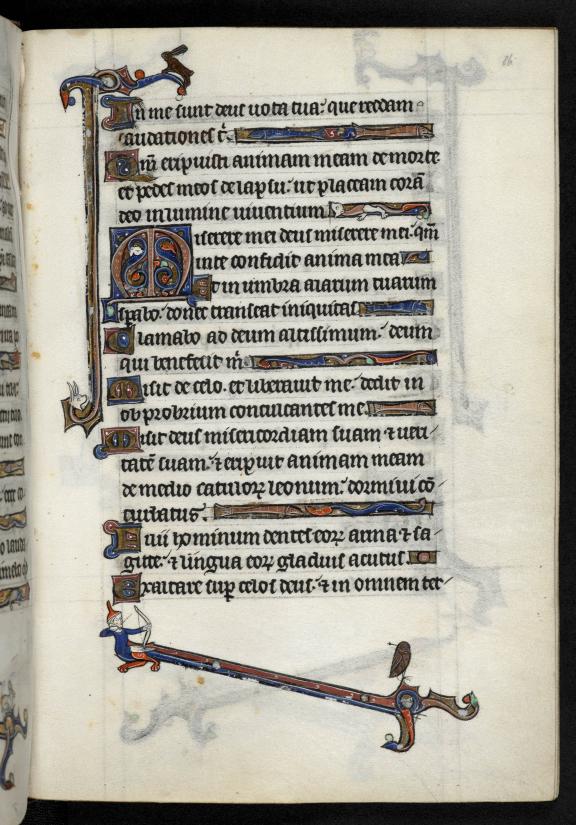 86
In me sunt deus uota tua: que reddam
laudationes t̄.
Qm̄ eripuisti animam meam de morte
et pedes meos de lapsu: ut placeam corā
deo in lumine uiuentium.
Miserere mei deus miserere mei: qm̄
in te confidit anima mea
Et in umbra alarum tuarum
sp̄abo: donec transeat iniquitas.
Clamabo ad deum altissimum: deum
qui benefecit m̄
Misit de celo. et liberauit me: dedit in
obprobrium conculcantes me.
Misit deus misericordiam suam ⁊ ueri-
tatē suam: ⁊ eripuit animam meam
de medio catuloꝝ leonum: dormiui cō
turbatus.
Filii hominum dentes eoꝝ arma ⁊ sa-
gitte: ⁊ lingua eoꝝ gladius acutus.
Exaltare sup̱ celos deus: ⁊ in omnem ter-